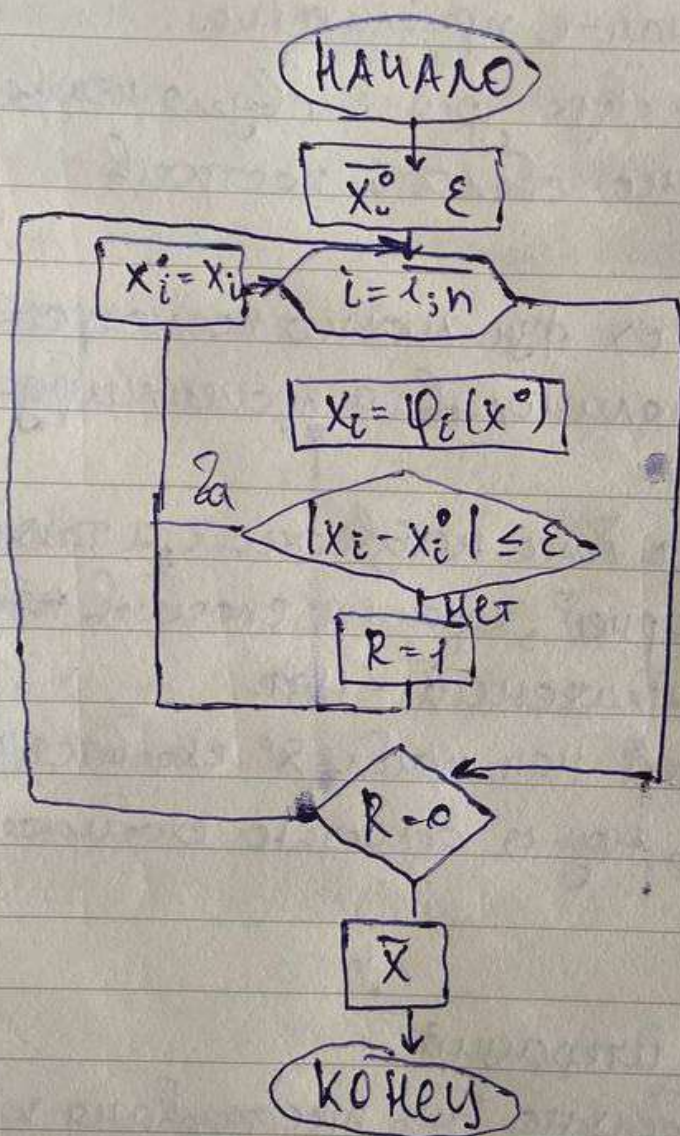 НАЧАЛО
x̅⁰ ε
x_i⁰ = x_i
i = 1; n
x_i = φ_i(x⁰)
Да
|x_i - x_i⁰| ≤ ε
нет
R = 1
R = 0
x̅
КОНЕЦ